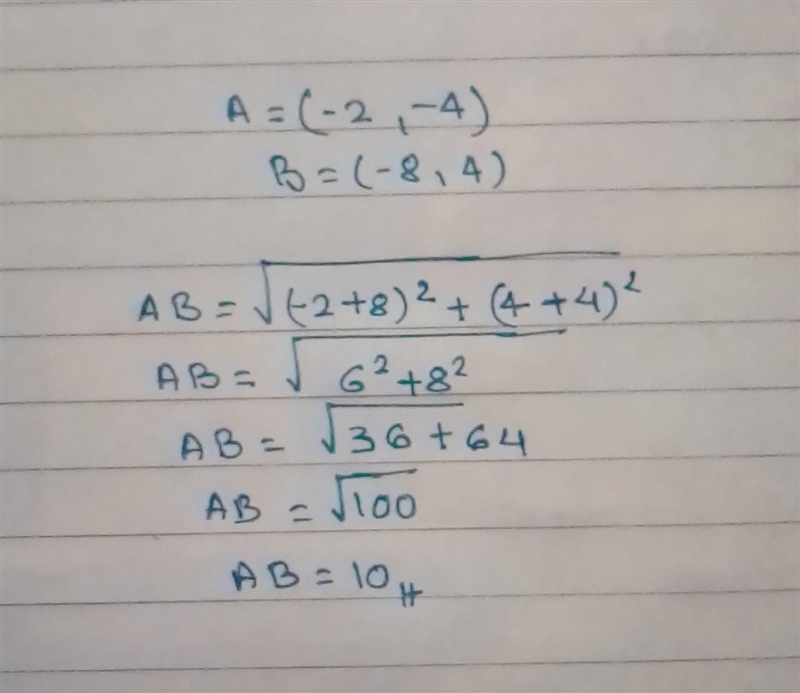 A = (-2, -4)
B = (-8, 4)
AB = √(-2+8)² + (4+4)²
AB = √6²+8²
AB = √36+64
AB = √100
AB = 10